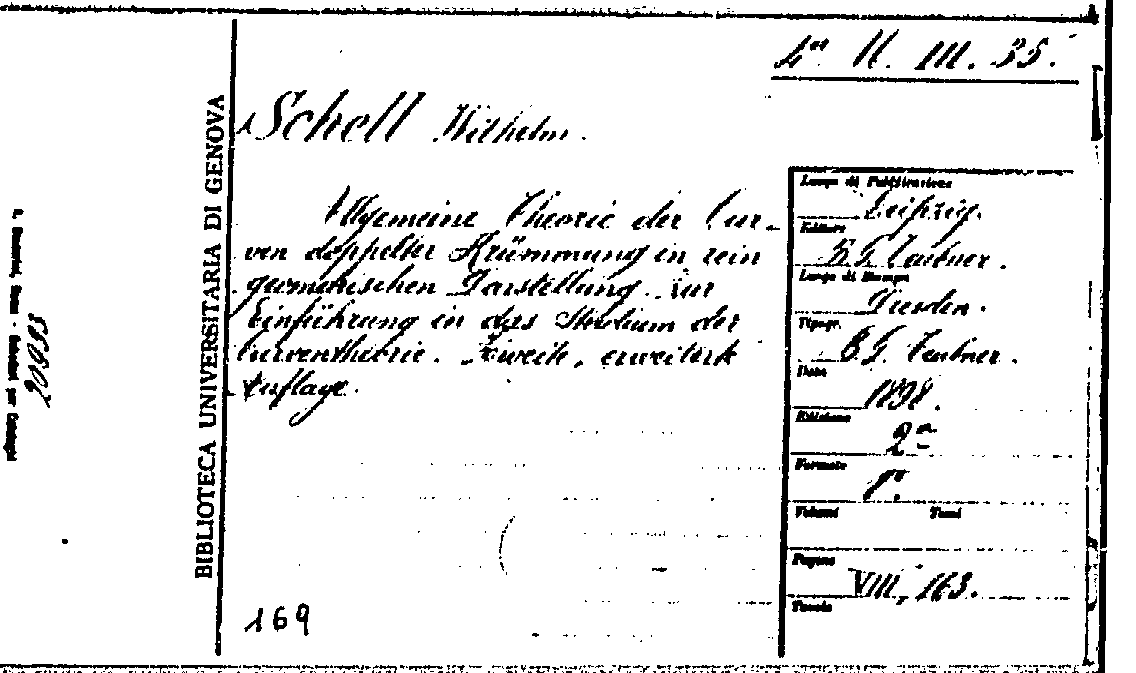 BIBLIOTECA UNIVERSITARIA DI GENOVA
Schell Wilhelm.
Allgemeine Theorie der Cur-
ven doppelter Krümmung in rein
geometrischen Darstellung. Zur
Einführung in das Studium der
Curventheorie. Zweite, erweiterte
Auflage.
169
III. 35.
Luogo di Pubblicazione
Leipzig.
Editore
B. G. Teubner.
Luogo di Stampa
Dresden.
Tipogr.
B. G. Teubner.
Data
1898.
Edizione
2ª
Formato
8°.
Volumi Tomi
Pagine
VIII, 163.
Tavole